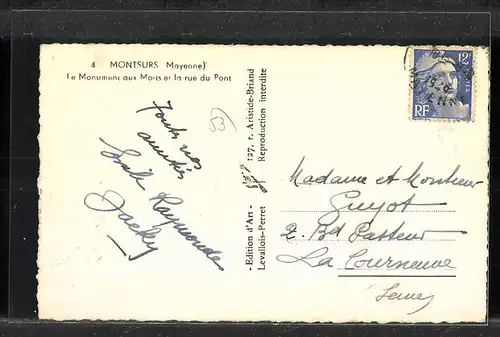 4 MONTSURS (Mayenne)
Le Monument aux Morts et la rue du Pont
53
Toutes nos
amitiés
Emile Raymonde
Jackey
- Edition d'Art -
Levallois-Perret
127, r. Aristide-Briand
Reproduction interdite
12F
POSTES
RF
Madame et Monsieur
Guyot
2. Bd Pasteur
La Courneuve
Seine